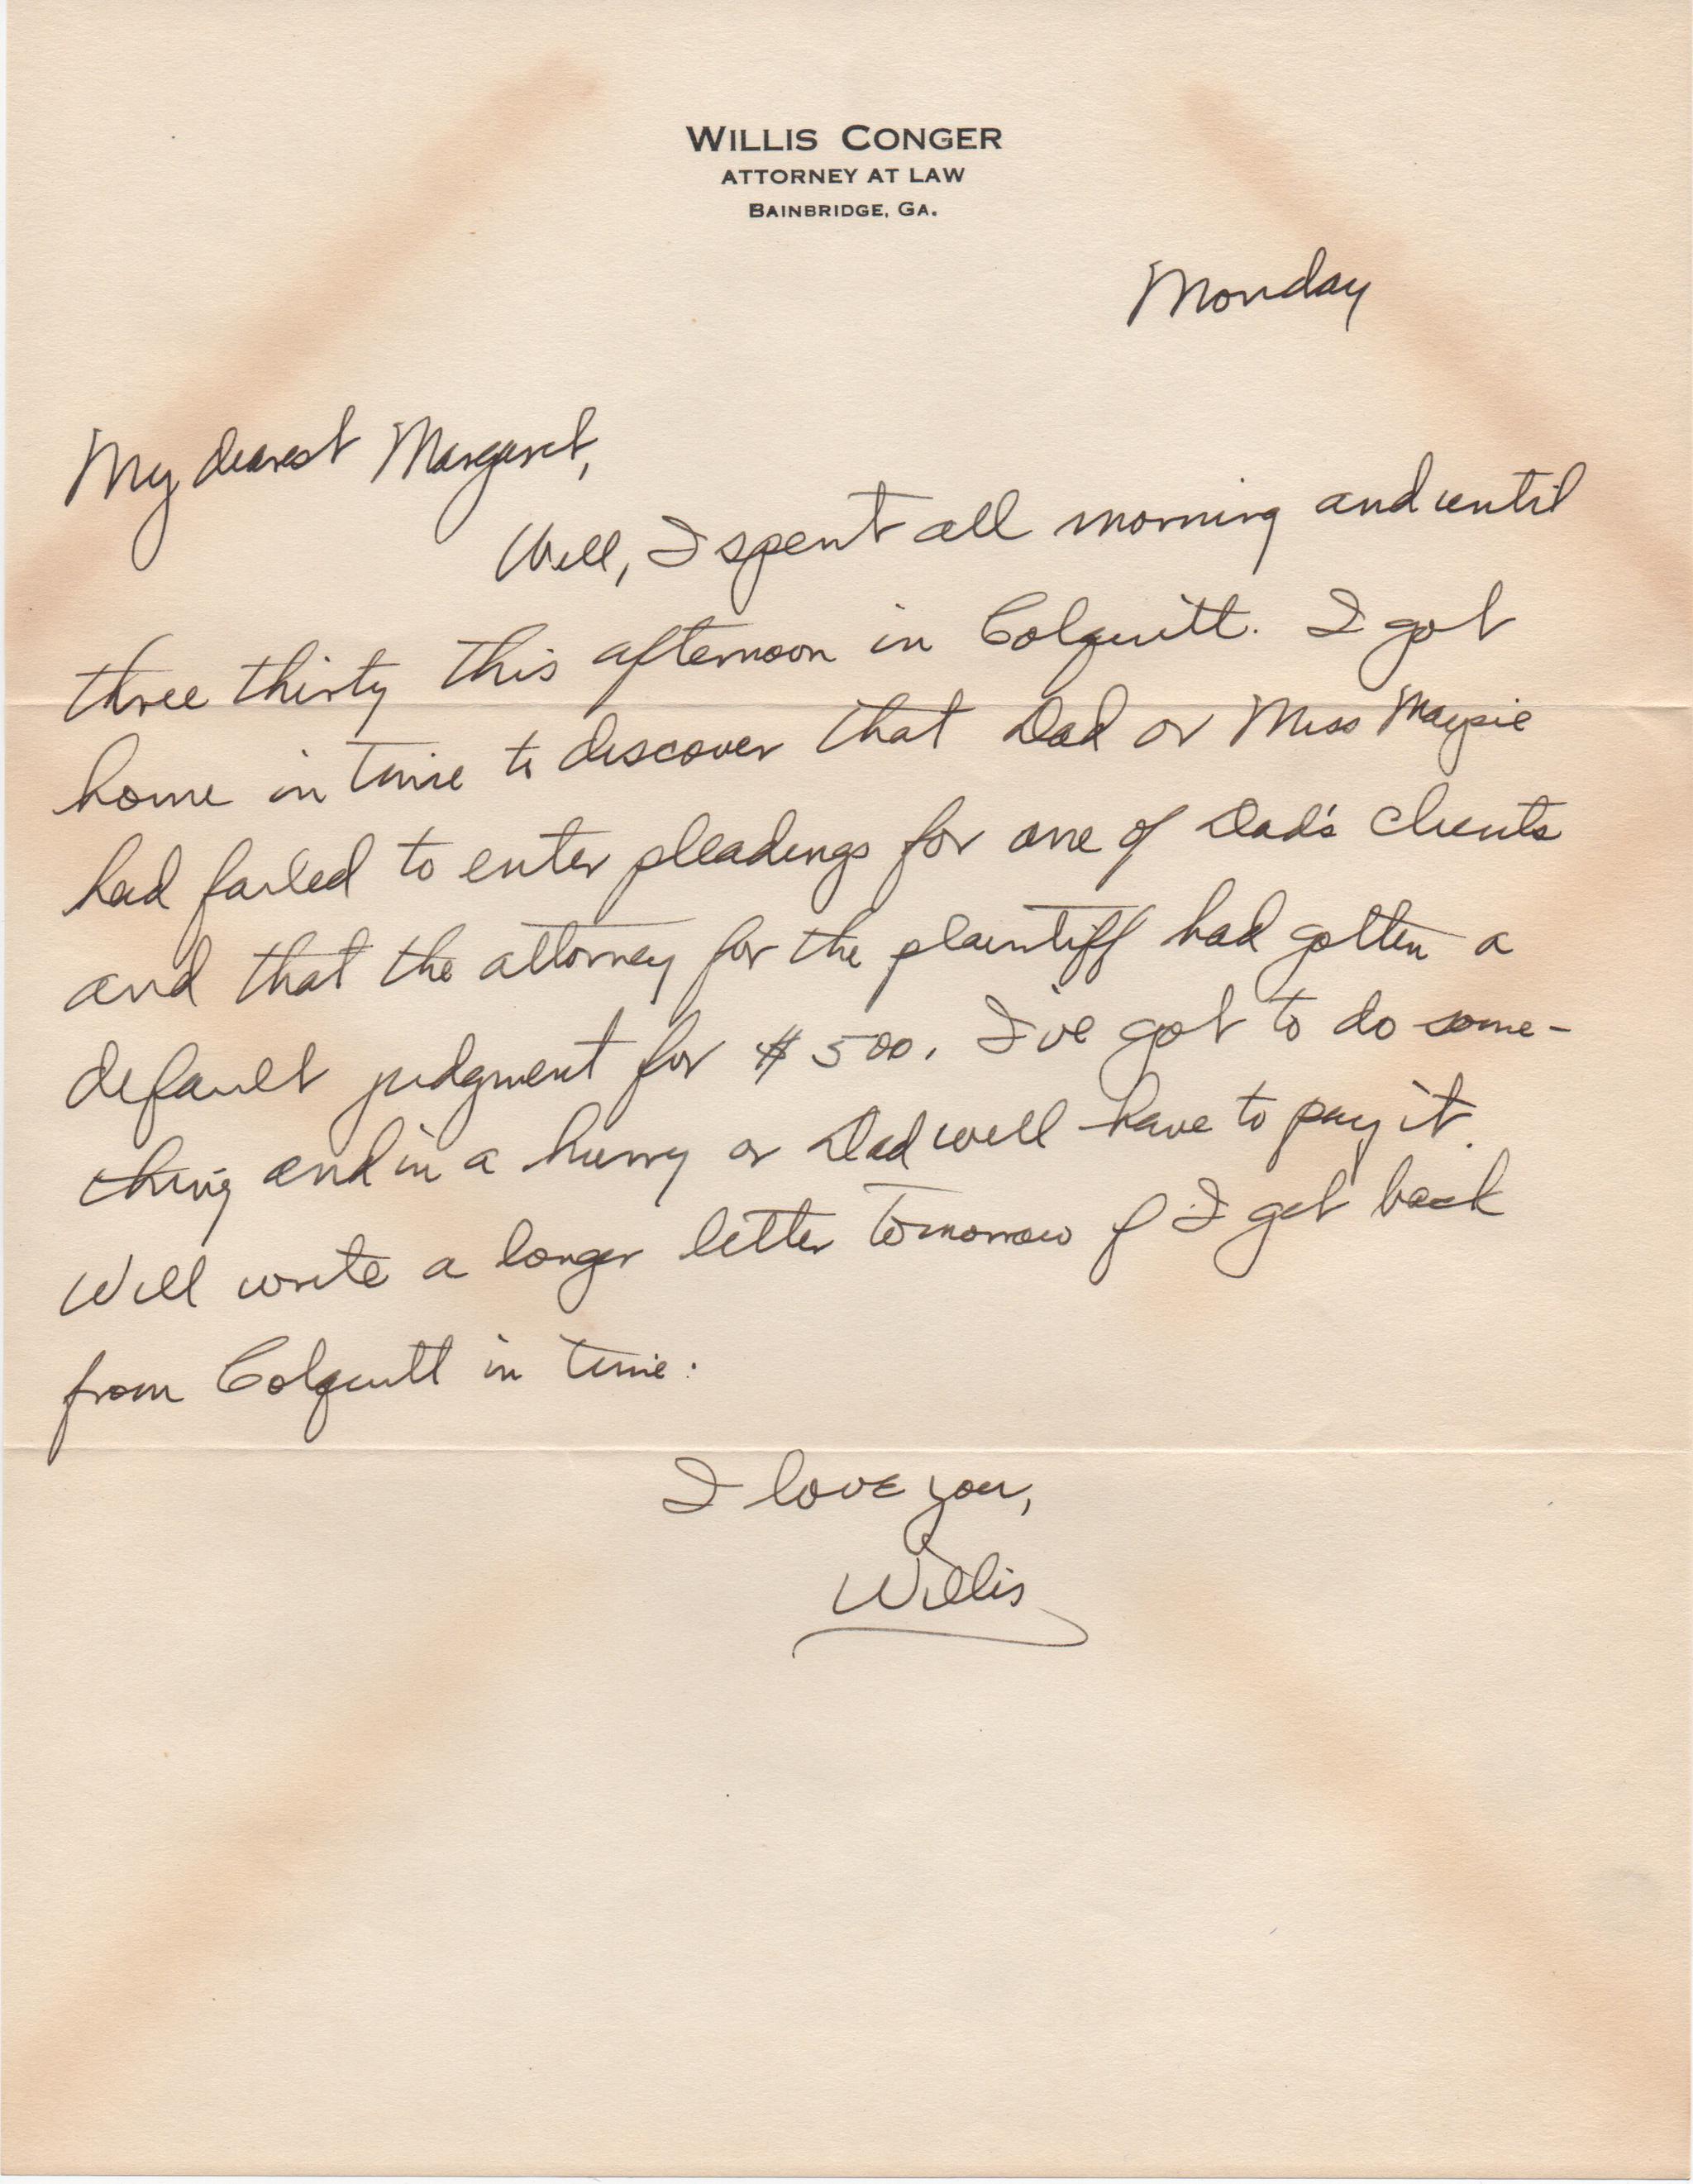 WILLIS CONGER
ATTORNEY AT LAW
BAINBRIDGE, GA.
Monday
My dearest Margaret,
Well, I spent all morning and until
three thirty this afternoon in Colquitt. I got
home in time to discover that Dad or Miss Maysie
had failed to enter pleadings for one of Dad's clients
and that the attorney for the plaintiff had gotten a
default judgment for $500. I've got to do some-
thing and in a hurry or Dad will have to pay it.
Will write a longer letter tomorrow if I get back
from Colquitt in time.
I love you,
Willis